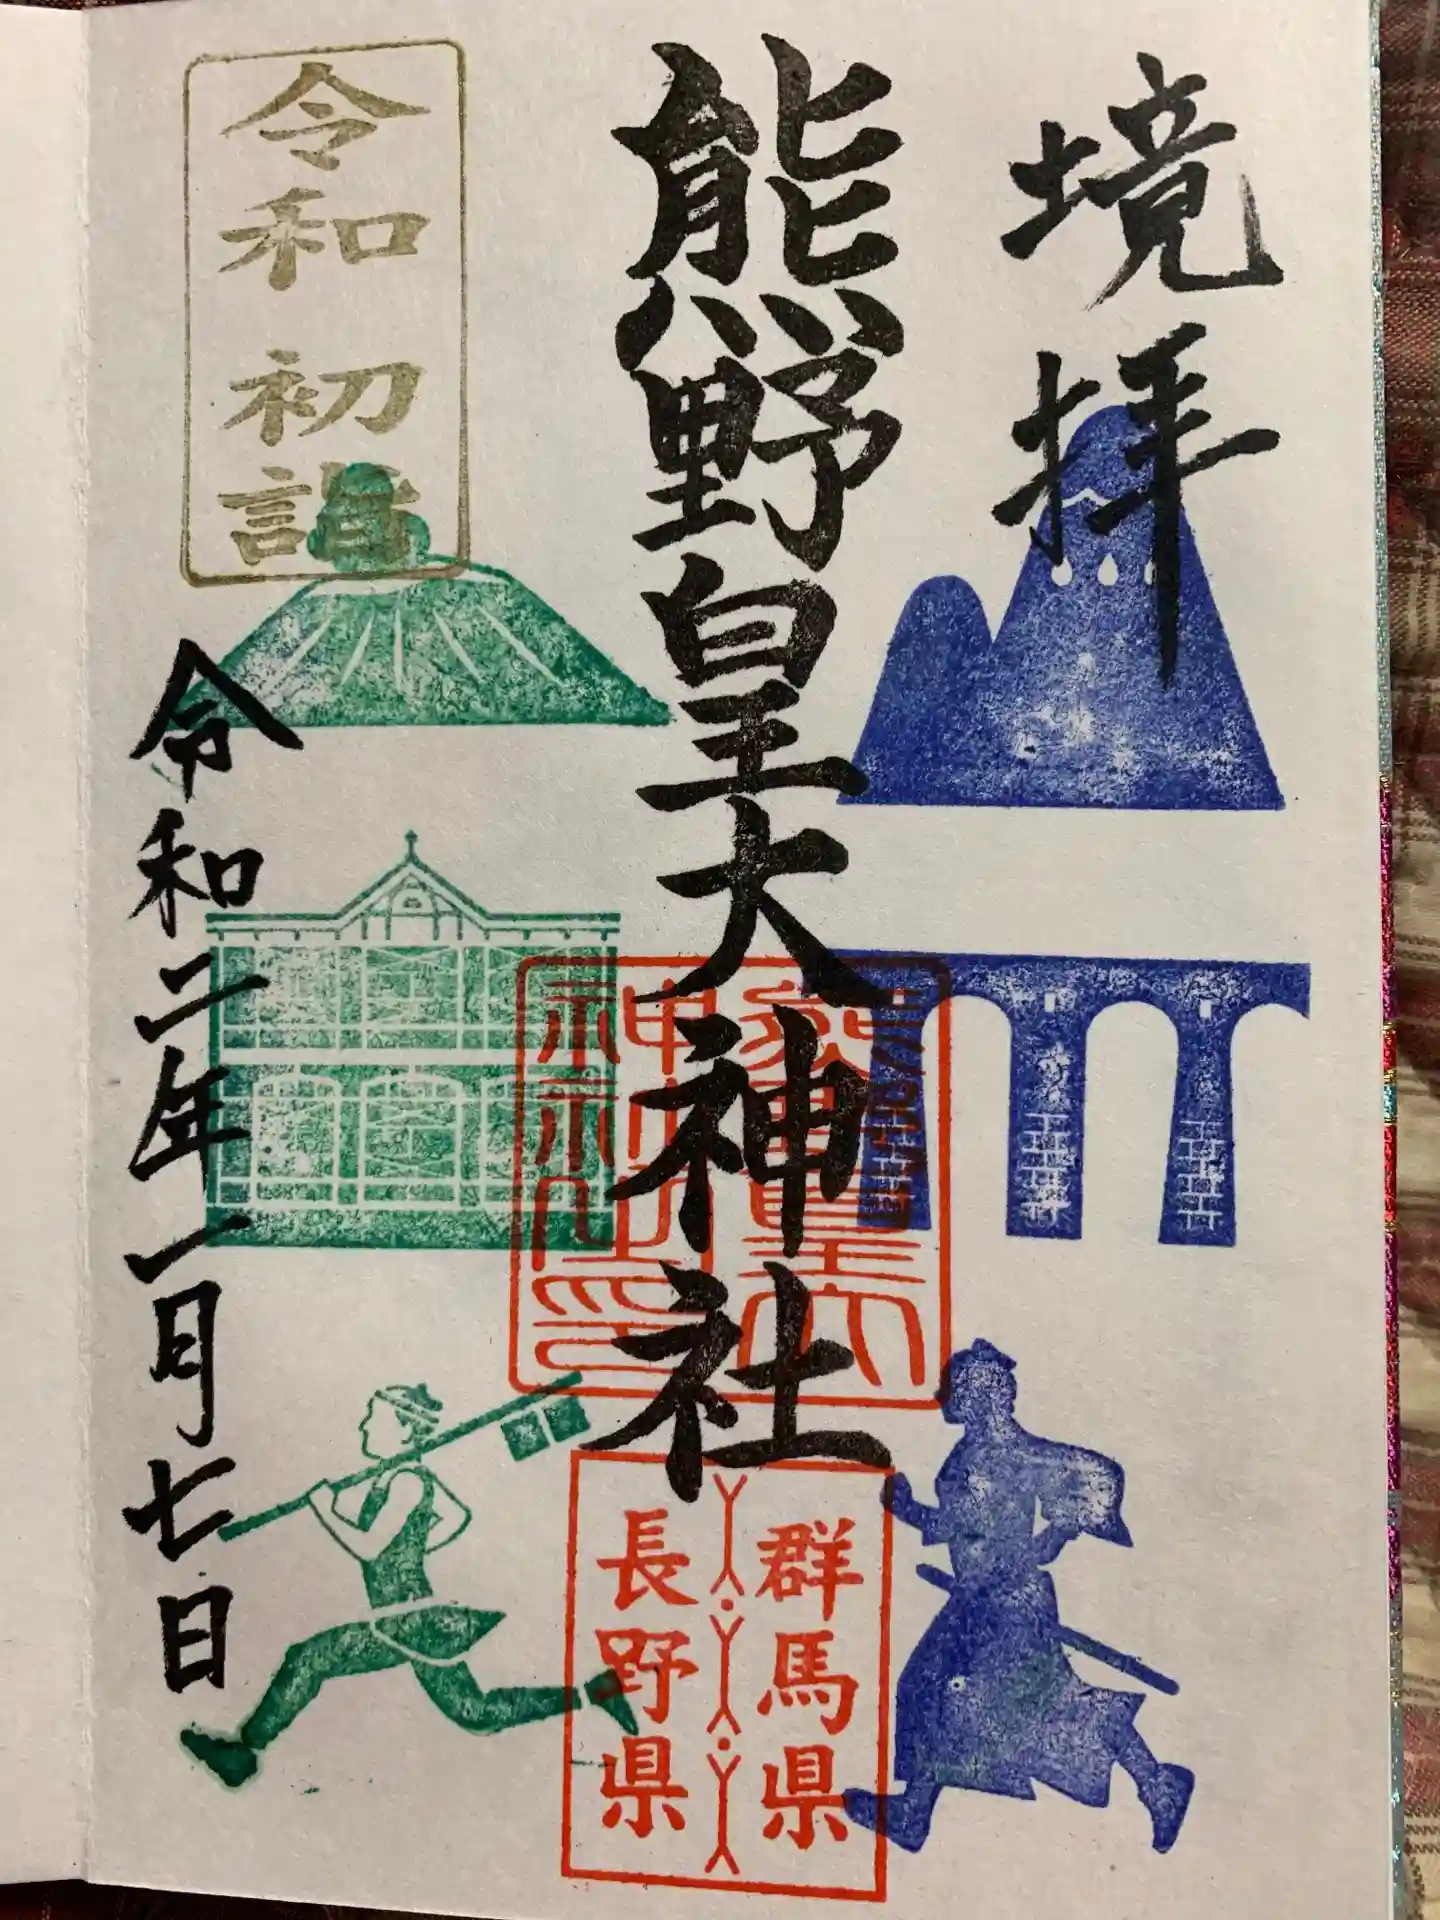 境拝
熊野皇大神社
群馬県
長野県
令和初詣
令和二年一月七日